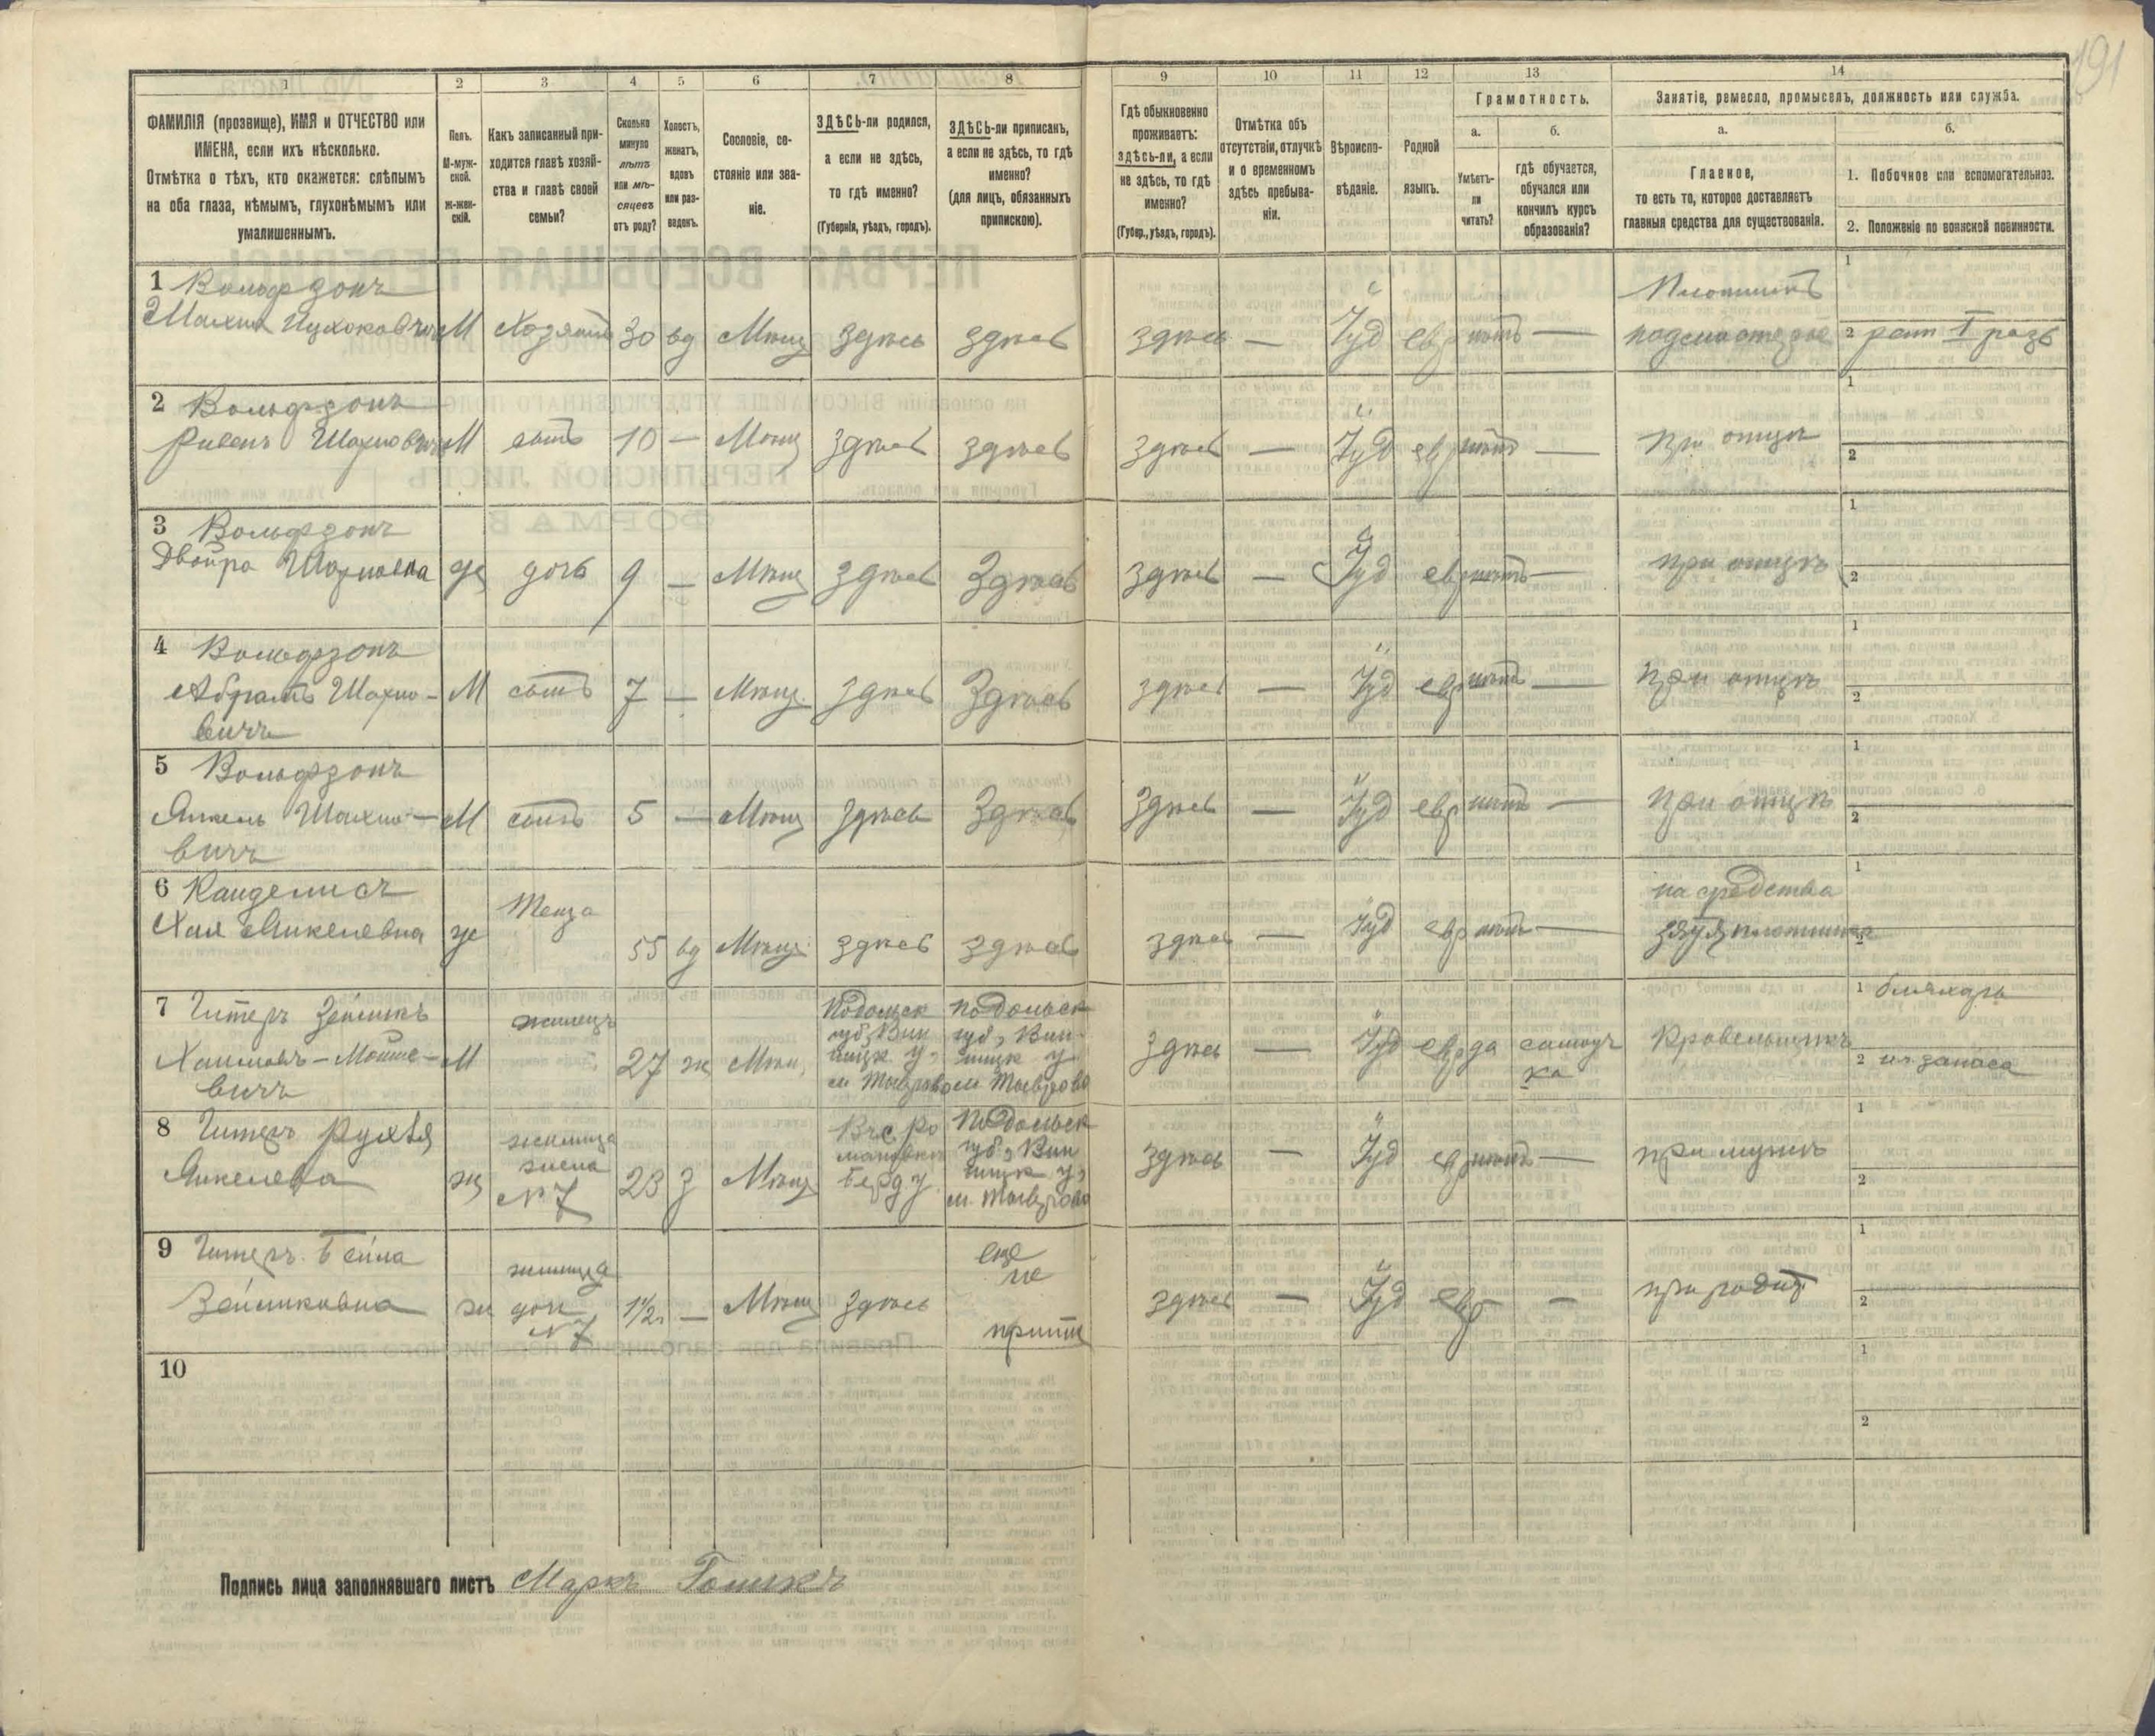 191
1
2
3
4
5
6
7
8
9
10
11
12
13
14
ФАМИЛІЯ (прозвище), ИМЯ и ОТЧЕСТВО или
ИМЕНА, если ихъ нѣсколько.
Отмѣтка о тѣхъ, кто окажется: слѣпымъ
на оба глаза, нѣмымъ, глухонѣмымъ или
умалишеннымъ.
Полъ.
М-муж-
ской.
Ж-жен-
скій.
Какъ записанный при-
ходится главѣ хозяй-
ства и главѣ своей
семьи?
Сколько
минуло
лѣтъ
или мѣ-
сяцевъ
отъ роду?
Холостъ,
женатъ,
вдовъ
или раз-
веденъ.
Сословіе, со-
стояніе или зва-
ніе.
ЗДѢСЬ-ли родился,
а если не здѣсь,
то гдѣ именно?
(Губернія, уѣздъ, городъ).
ЗДѢСЬ-ли приписанъ,
а если не здѣсь, то гдѣ
именно?
(для лицъ, обязанныхъ
припискою).
Гдѣ обыкновенно
проживаетъ:
здѣсь-ли, а если
не здѣсь, то гдѣ
именно?
(Губер., уѣздъ, городъ).
Отмѣтка объ
отсутствіи, отлучкѣ
и о временномъ
здѣсь пребыва-
ніи.
Вѣроиспо-
вѣданіе.
Родной
языкъ.
Грамотность.
а.
Умѣетъ-
ли
читать?
б.
гдѣ обучается,
обучался или
кончилъ курсъ
образованія?
Занятіе, ремесло, промыселъ, должность или служба.
а.
Главное,
то есть то, которое доставляетъ
главныя средства для существованія.
б.
1. Побочное или вспомогательное.
2. Положеніе по воинской повинности.
1 Вольфзонъ
Шахна Ицхоковичъ М Хозяинъ 30 вд Мѣщ здѣсь здѣсь здѣсь — Іуд евр нѣтъ — Плотникъ
1
2 рат I разр
2 Вольфзонъ
Рувенъ Шахновичъ М сынъ 10 — Мѣщ здѣсь здѣсь здѣсь — Іуд евр нѣтъ — при отцѣ
1
2
3 Вольфзонъ
Двойра Шахновна ж дочь 9 — Мѣщ здѣсь здѣсь здѣсь — Іуд евр нѣтъ — при отцѣ
1
2
4 Вольфзонъ
Абрамъ Шахно- М сынъ 7 — Мѣщ здѣсь здѣсь здѣсь — Іуд евр нѣтъ — при отцѣ
вичъ
1
2
5 Вольфзонъ
Янкель Шахно- М сынъ 5 — Мѣщ здѣсь здѣсь здѣсь — Іуд евр нѣтъ — при отцѣ
вичъ
1
2
6 Канделисъ
Хая Янкелевна ж Теща 55 вд Мѣщ здѣсь здѣсь здѣсь — Іуд евр нѣтъ — на средства
зятя плотника
1
7 Гитеръ Зейликъ
Хаимовъ-Мойше- М жилецъ 27 ж Мѣщ
вичъ
Подольск
губ, Вин
ницк у,
м. Тывровъ
Подольск
губ, Вин-
ницк у
м. Тыврово
здѣсь — Іуд евр да самоуч
ка
Кровельщикъ
1 бляхаръ
2 изъ запаса
8 Гитеръ Рухля
Янкелева ж жилица
жена
№7
23 з Мѣщ
Берд у
Подольск
губ, Вин
ницк у,
м. Тыврово
здѣсь — Іуд евр нѣтъ — при мужѣ
1
2
9 Гитеръ Бейла
Зейликовна ж жилица
доч
№7
1½ — Мѣщ здѣсь
еще
не
прип
здѣсь — Іуд евр — при родит
1
2
10
1
2
Подпись лица заполнявшаго листъ Маркъ Голикъ